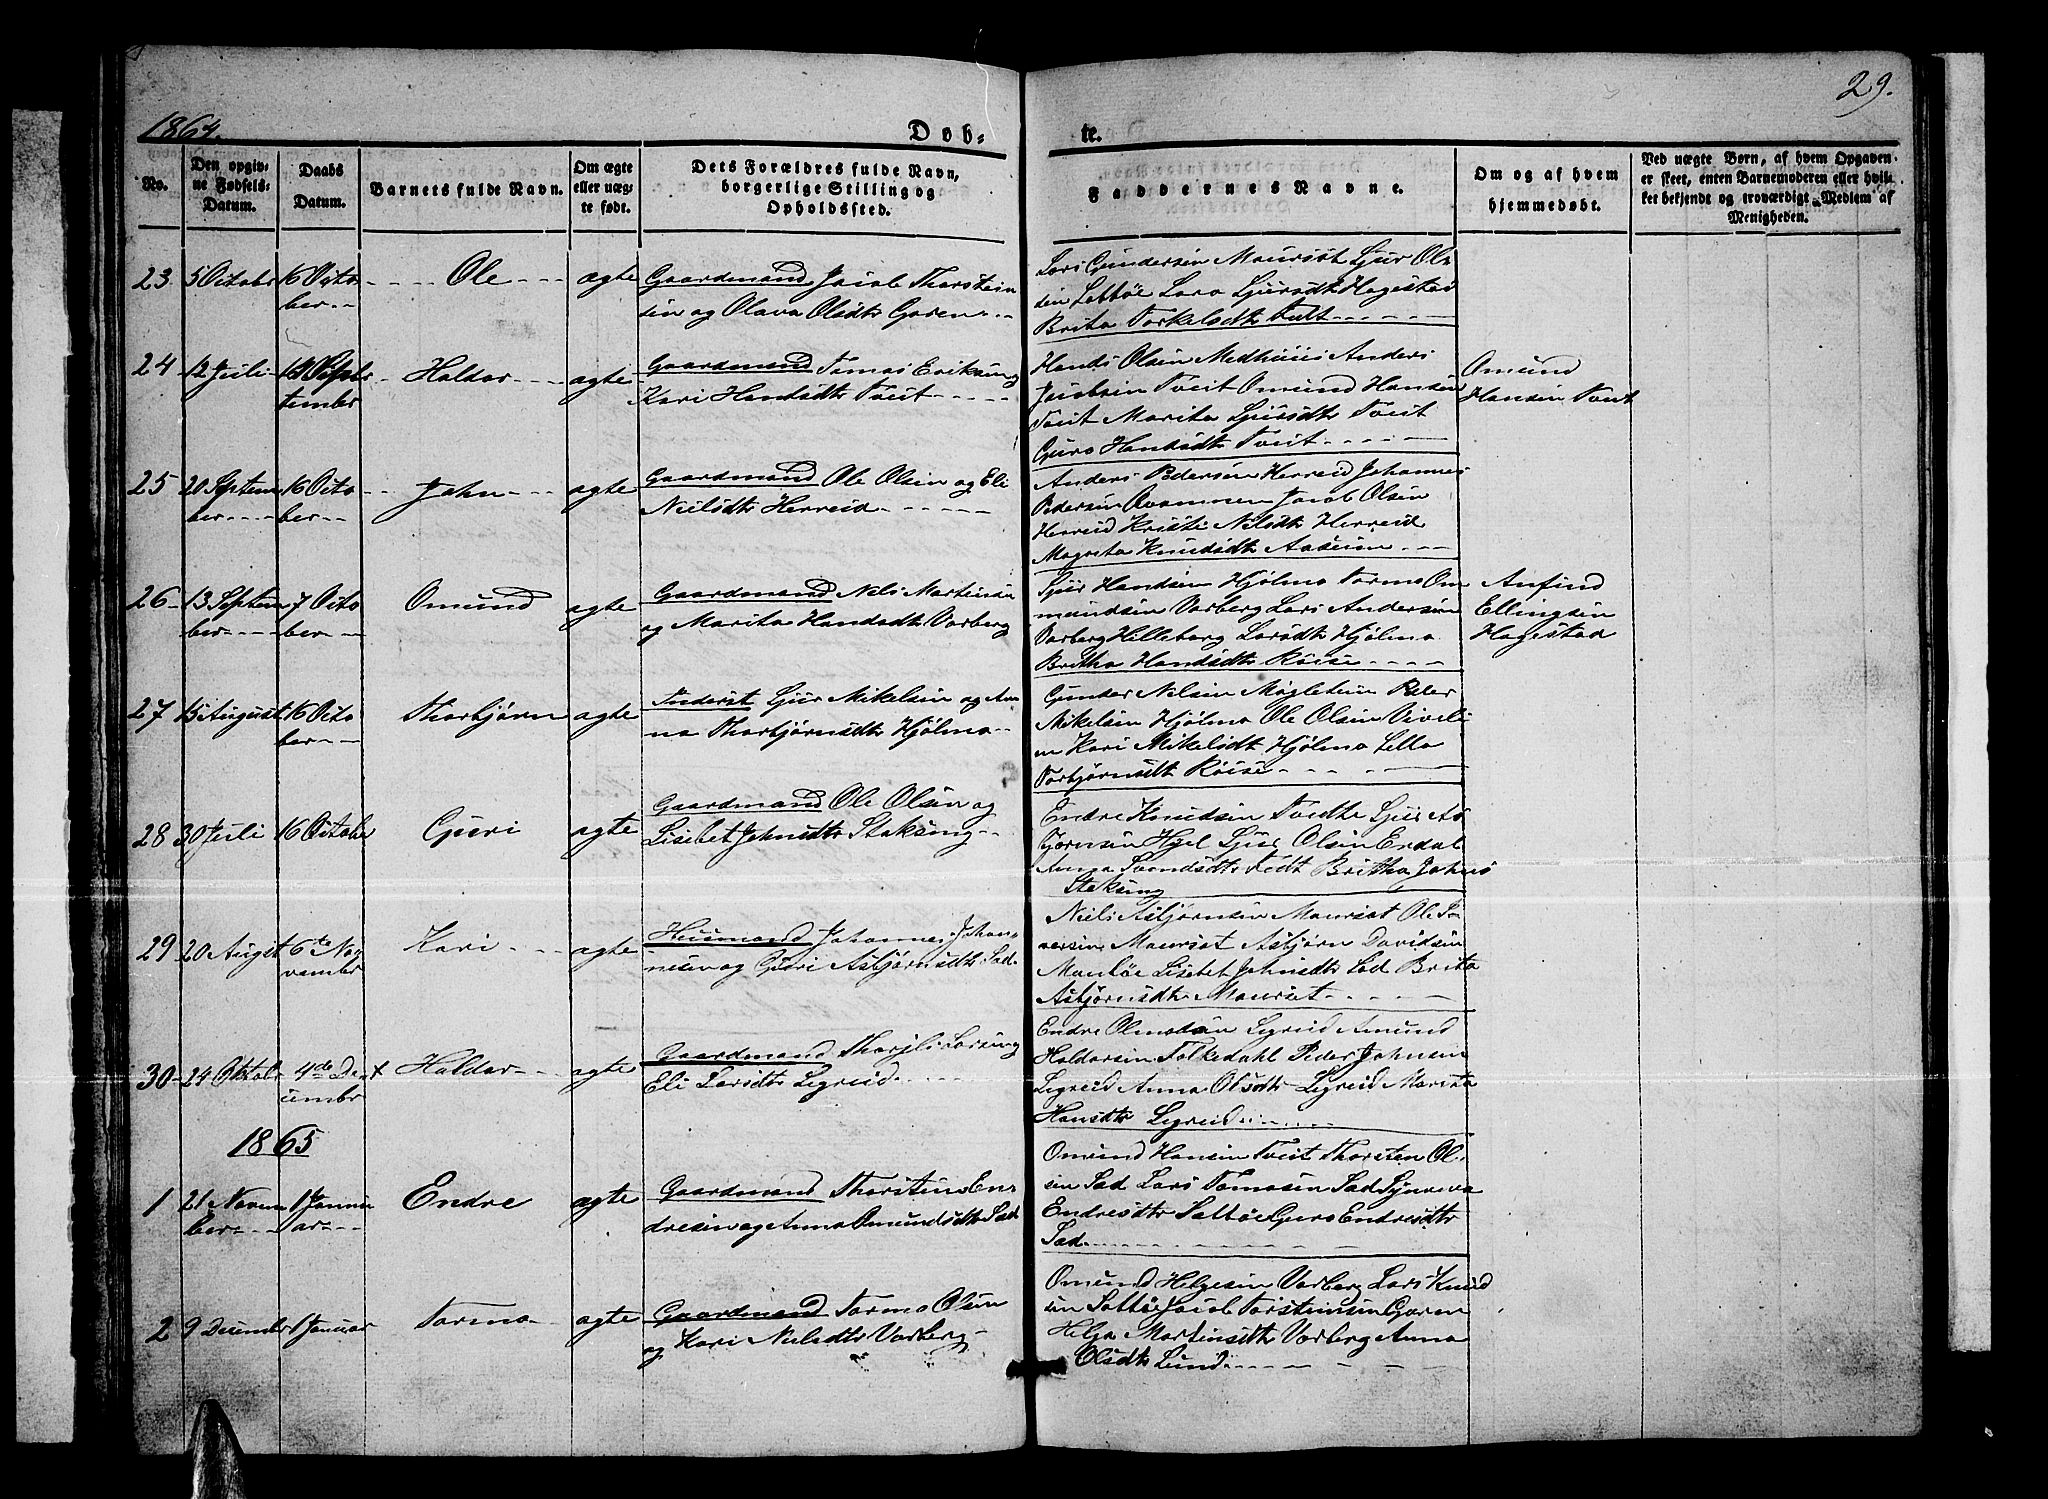 29.
1864.
Døb-
te.
No.
Den opgiv-
ne Fødsels-
Datum.
Daabs
Datum.
Barnets fulde Navn.
Om ægte
eller uæg-
te født.
Dets Forældres fulde Navn,
borgerlige Stilling og
Opholdssted.
Faddernes Navne.
Om og af hvem
hjemmedøbt.
Ved uægte Børn, af hvem Opgaven
er skeet, enten Barnemoderen eller hvil-
ket bekjendt og troværdigt Medlem af
Menigheden.
23
5 Octobr
16 Octo
ber
Ole
ægte
Gaardmand Jacob Thorstein
sen og Olava Olsdtr Garen
Lars Gundersen Maurset Sjur Ol
sen Sæltøe Sjursdtr Hagestad
Brita Torkelsdtr Tveit
24
12 Juli
Septr
tember
Haldor
ægte
Gaardmand Tomas Eriksen og
Kari Hansdtr Tveit
Hans Olsen Medhuus Anders
Jacobsen Tveit Omund Hansen
Tveit Marita Sjursdtr Tveit
Guro Hansdtr Tveit
Omund
Hansen Tveit
25
20 Septem
ber
16 Octo
ber
John
ægte
Gaardmand Ole Olsen og Eli
Nielsdtr Herreid
Anders Pedersen Herreid Johannes
Pedersen Qvammen Jacob Olsen
Herreid Kristi Nilsdtr Herreid
Magreta Knudsdtr Aaseim
26
13 Septem
ber
7 Octo
ber
Omund
ægte
Gaardmand Nels Martinsen
og Marita Hansdtr Varberg
Sjur Handsen Hjølmo Tormo Om
mundsen Varberg Lars Andersen
Varberg Hilleborg Larsdtr Hjølmo
Britha Hansdtr Røise
Anfind
Ellingsen
Hagestad
27
15 August
16 Octo
ber
Thorbjørn
ægte
Inderst Sjur Mikelsen og An
na Thorbjørnsdtr Hjølmo
Gunder Nilsen Mogletun Peder
Mikelsen Hjølmo Ole Olsen Viveli
en Kari Mikelsdtr Hjølmo
Torbjørnsdtr Røise
28
30 Juli
16 Octobr
Guri
ægte
Gaardmand Ole Olsen og
Lisebet Johnsdtr Stakseng
Endre Knudsen Tvedte Sjur As
bjørnsen Hyel Sjur Olsen Erdal
Anna Svendsdtr Tvedt Britha Johns
Stakseng
29
20 August
6te No
vember
Kari
ægte
Husmand Johannes Johan
nesen og Guri Asbjørnsdtr Sæd
Niels Asbjørnsen Maurset Ole I
versen Maurset Asbjørn Davidsen
Lisebet Johnsdtr Sæd Brita
Asbjørnsdtr Maurset
30
24 Oktob
4de De
cembr
Haldor
ægte
Gaardmand Thorjls Larsen og
Eli Larsdtr Legreid
Endre Legreid Amund
Haldorsen Folkedahl Peder Johnsen
Legreid Anna Olsdtr Legreid Marita
Hansdtr Legreid
1865
1
21 Novem
ber
1 Janu
ar
Endre
ægte
Gaardmand Thorsten En
dresen og Anna Omundsdtr Sæd
Omund Hansen Tveit Thorsten Ol
sen Sæd Lars Tomasen Sæd Synneva
Endresdtr Sæltøe Guro Endresdtr
Sæd
2
9 Decembr
1 Januar
Tormo
ægte
Gaardmand Tormo Olsen
og Kari Nielsdtr Varberg
Omund Helgesen Varberg Lars Knud
sen Sæltøe Jacob Torsteinsen Garen
Helga Martinsdtr Varberg Anna
Olsdtr Lund